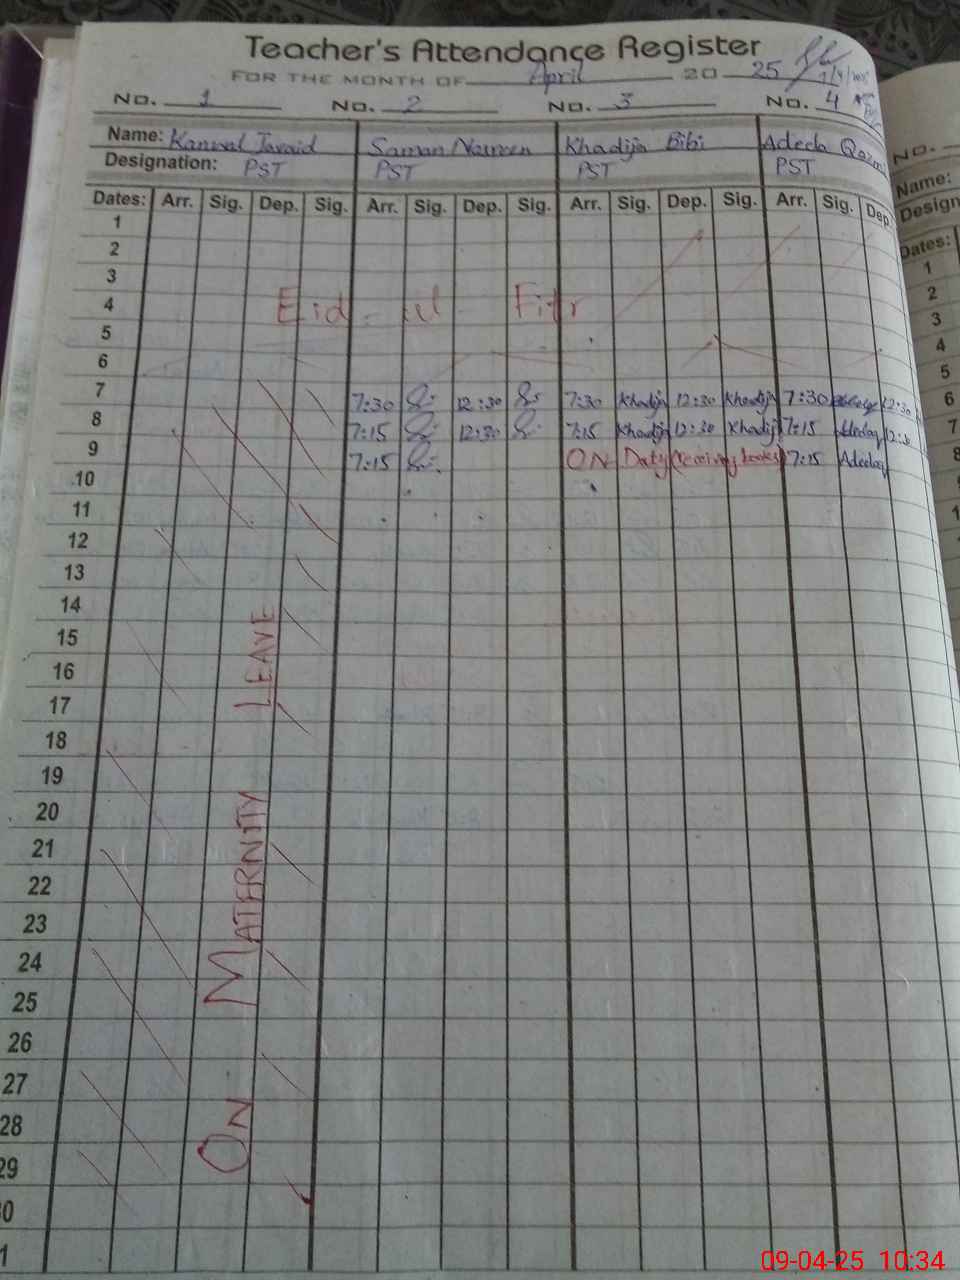 Teacher's Attendance Register
FOR THE MONTH OF April 20 25
No. 1 No. 2 No. 3 No. 4
Name: Kanwal Javaid Saman Nasreen Khadija Bibi Adeela
Designation: PST PST PST PST
Dates: Arr. Sig. Dep. Sig. Arr. Sig. Dep. Sig. Arr. Sig. Dep. Sig. Arr. Sig. Dep.
1
2
3
4 Eid - ul - Fitr
5
6
7 7:30 12:30 7:30 Khadija 12:30 Khadija 7:30 12:30
8 7:15 12:30 7:15 Khadija 12:30 Khadija 7:15 12:30
9 7:15 ON Duty (receiving books) 7:15
10
11
12
13
14
15
16
17
18
19
20
21
22
23
24
25
26
27
28
29
30
31
ON MATERNITY LEAVE
No.
Name:
Design
Dates:
1
2
3
4
5
6
7
8
09-04-25 10:34